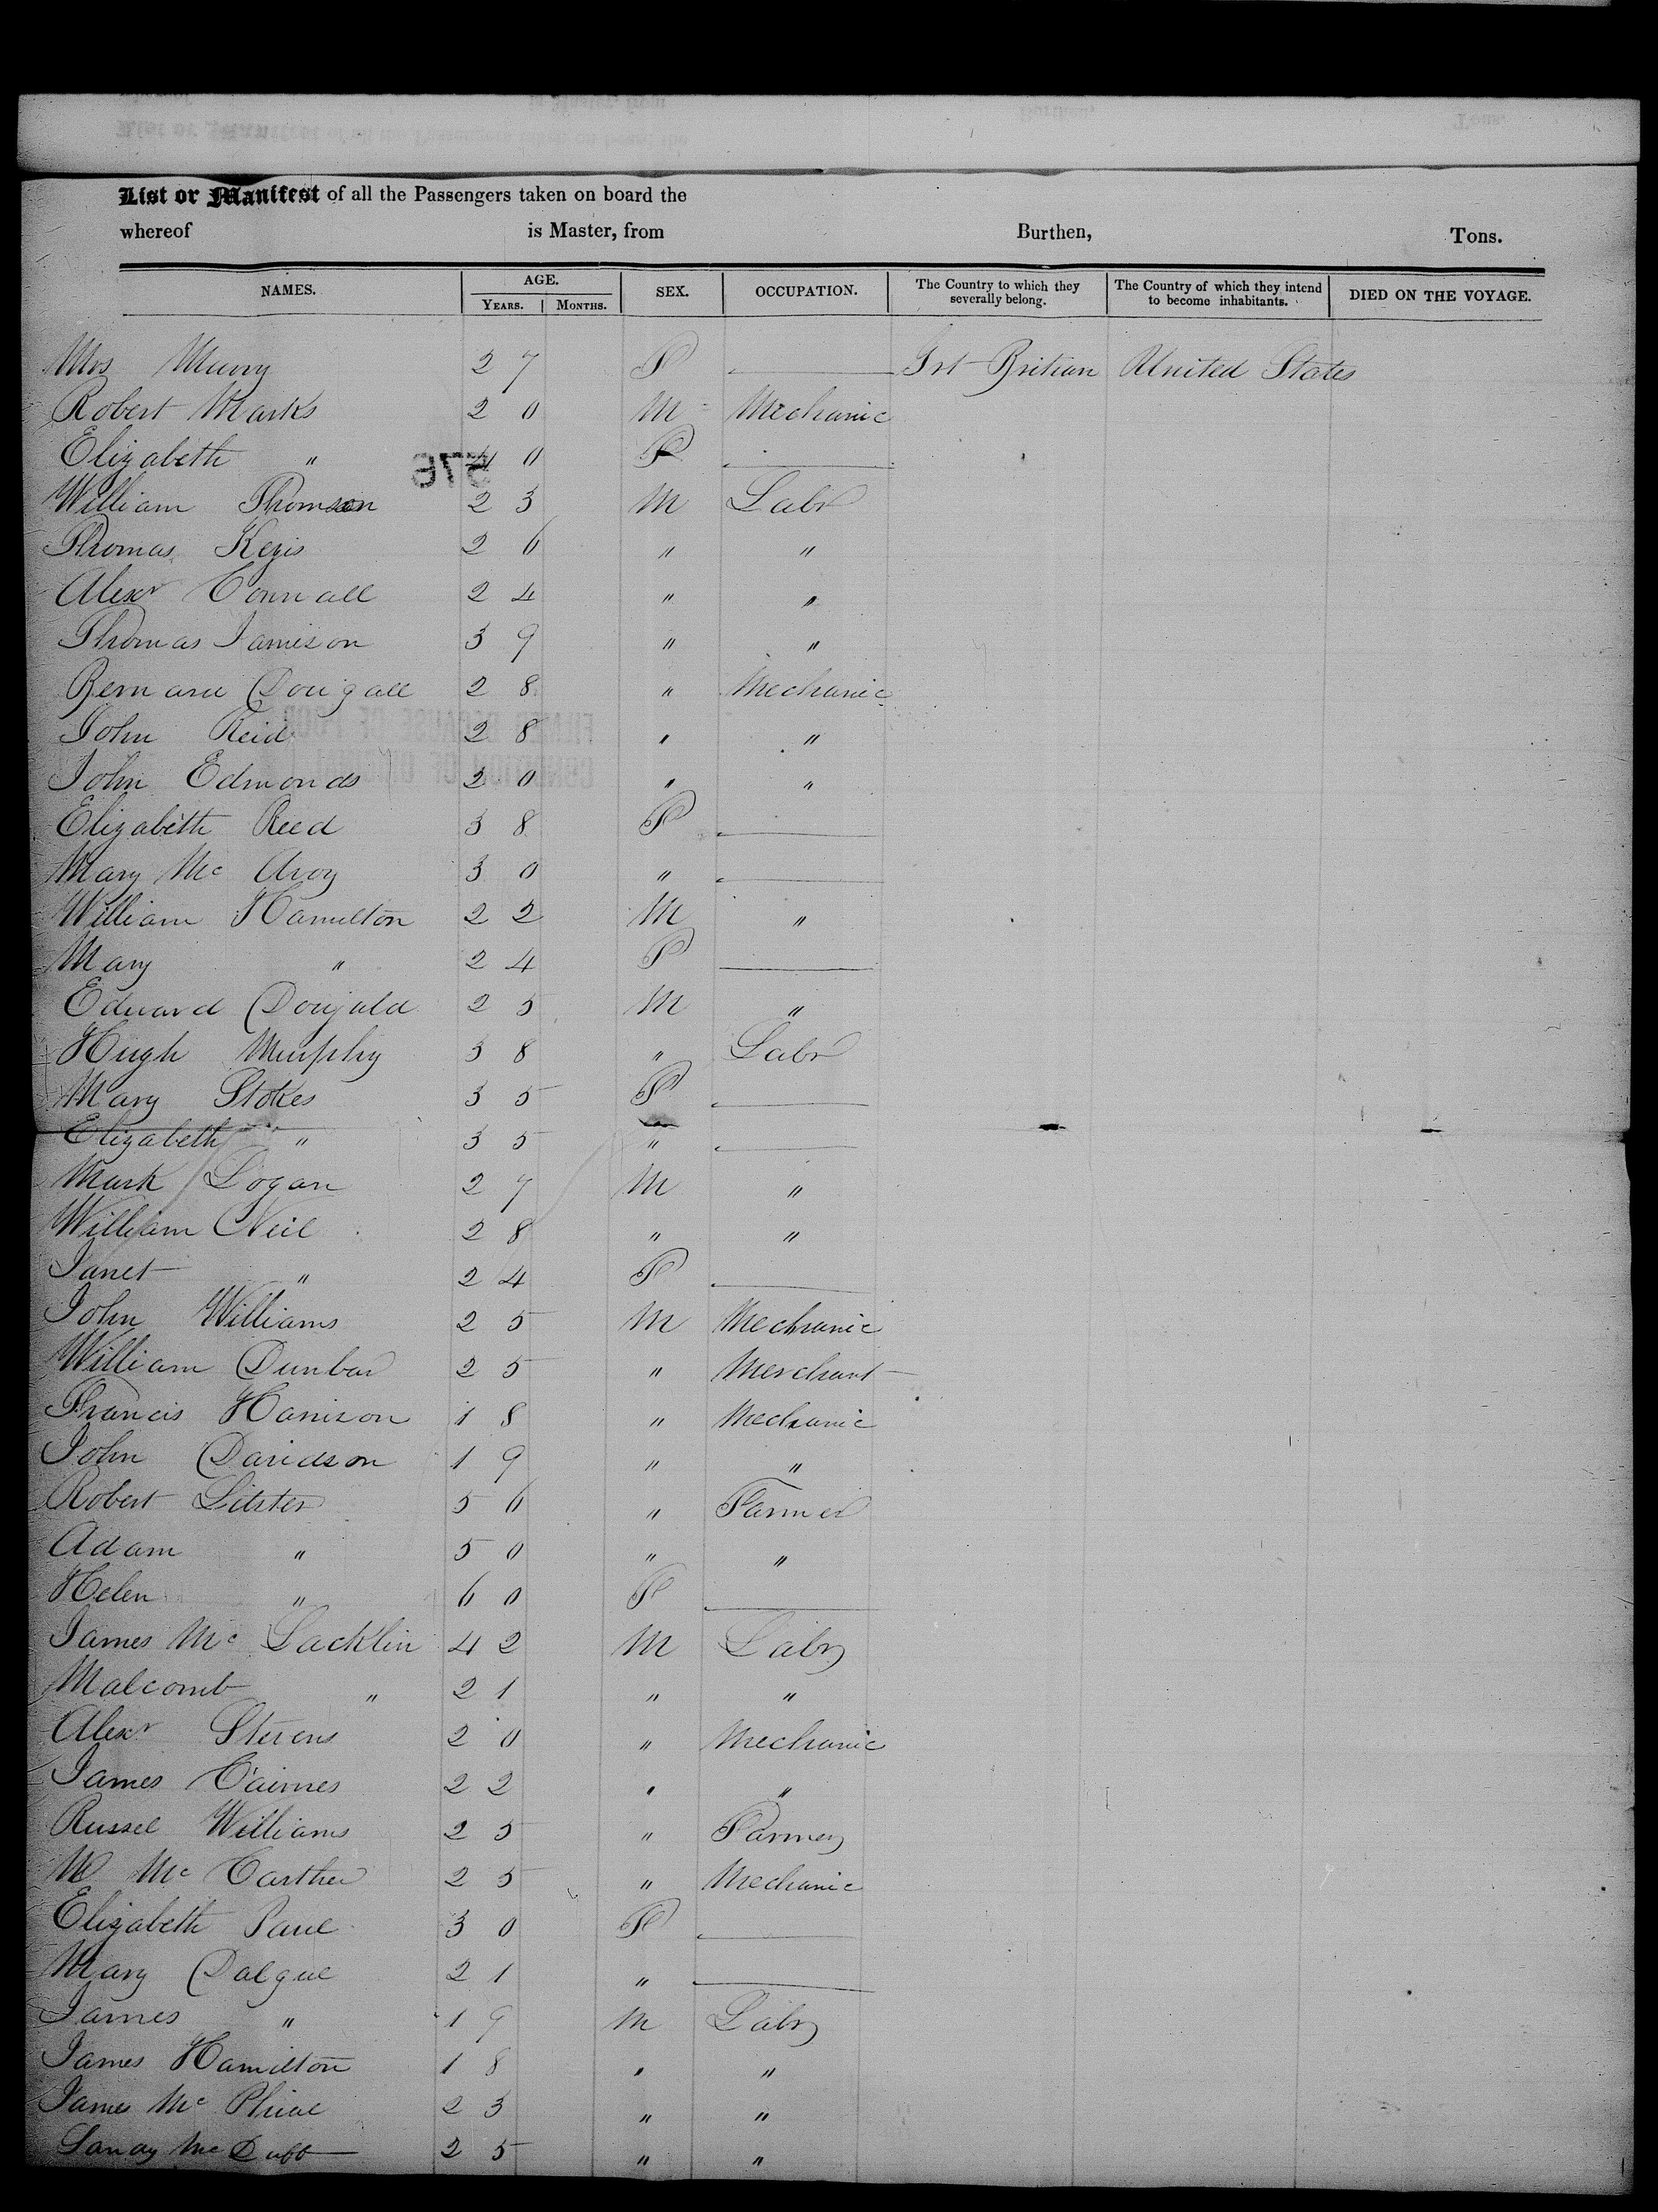 List or Manifest of all the Passengers taken on board the
whereof is Master, from Burthen, Tons.
NAMES. AGE. SEX. OCCUPATION. The Country to which they severally belong. The Country of which they intend to become inhabitants. DIED ON THE VOYAGE.
YEARS. MONTHS.
Mrs 27 F — Grt Britian United States
Robert Marks 20 M Mechanic
Elizabeth " 40 F —
William Thomson 23 M Labr
Thomas 26 " "
Alexr Connall 24 " "
Thomas Jamison 39 " "
Bernard Dougall 28 " Mechanic
John Reid 28 " "
John Edmonds 20 " "
Elizabeth Reed 38 F —
Mary Mc Avoy 30 " —
William Hamilton 22 M "
Mary " 24 F —
Edward 25 M "
Hugh Murphy 38 " Labr
Mary Stokes 35 F —
Elizabeth " 35 " —
Mark Logan 27 M "
William Neil 28 " "
Janet " 24 F —
John Williams 25 M Mechanic
William Dunbar 25 " Merchant
Francis Harrison 18 " Mechanic
John Davidson 19 " "
Robert 56 " Farmer
Adam " 50 " "
Helen " 60 F —
James Mc Lacklin 42 M Labr
Malcomb " 21 " "
Alexr Stevens 20 " Mechanic
James Cairnes 22 " "
Russel Williams 25 " Farmer
Mc 25 " Mechanic
Elizabeth Paul 30 F —
Mary 21 " —
James " 19 M Labr
James Hamilton 18 " "
James Mc Phial 23 " "
Mc Duff 25 " "